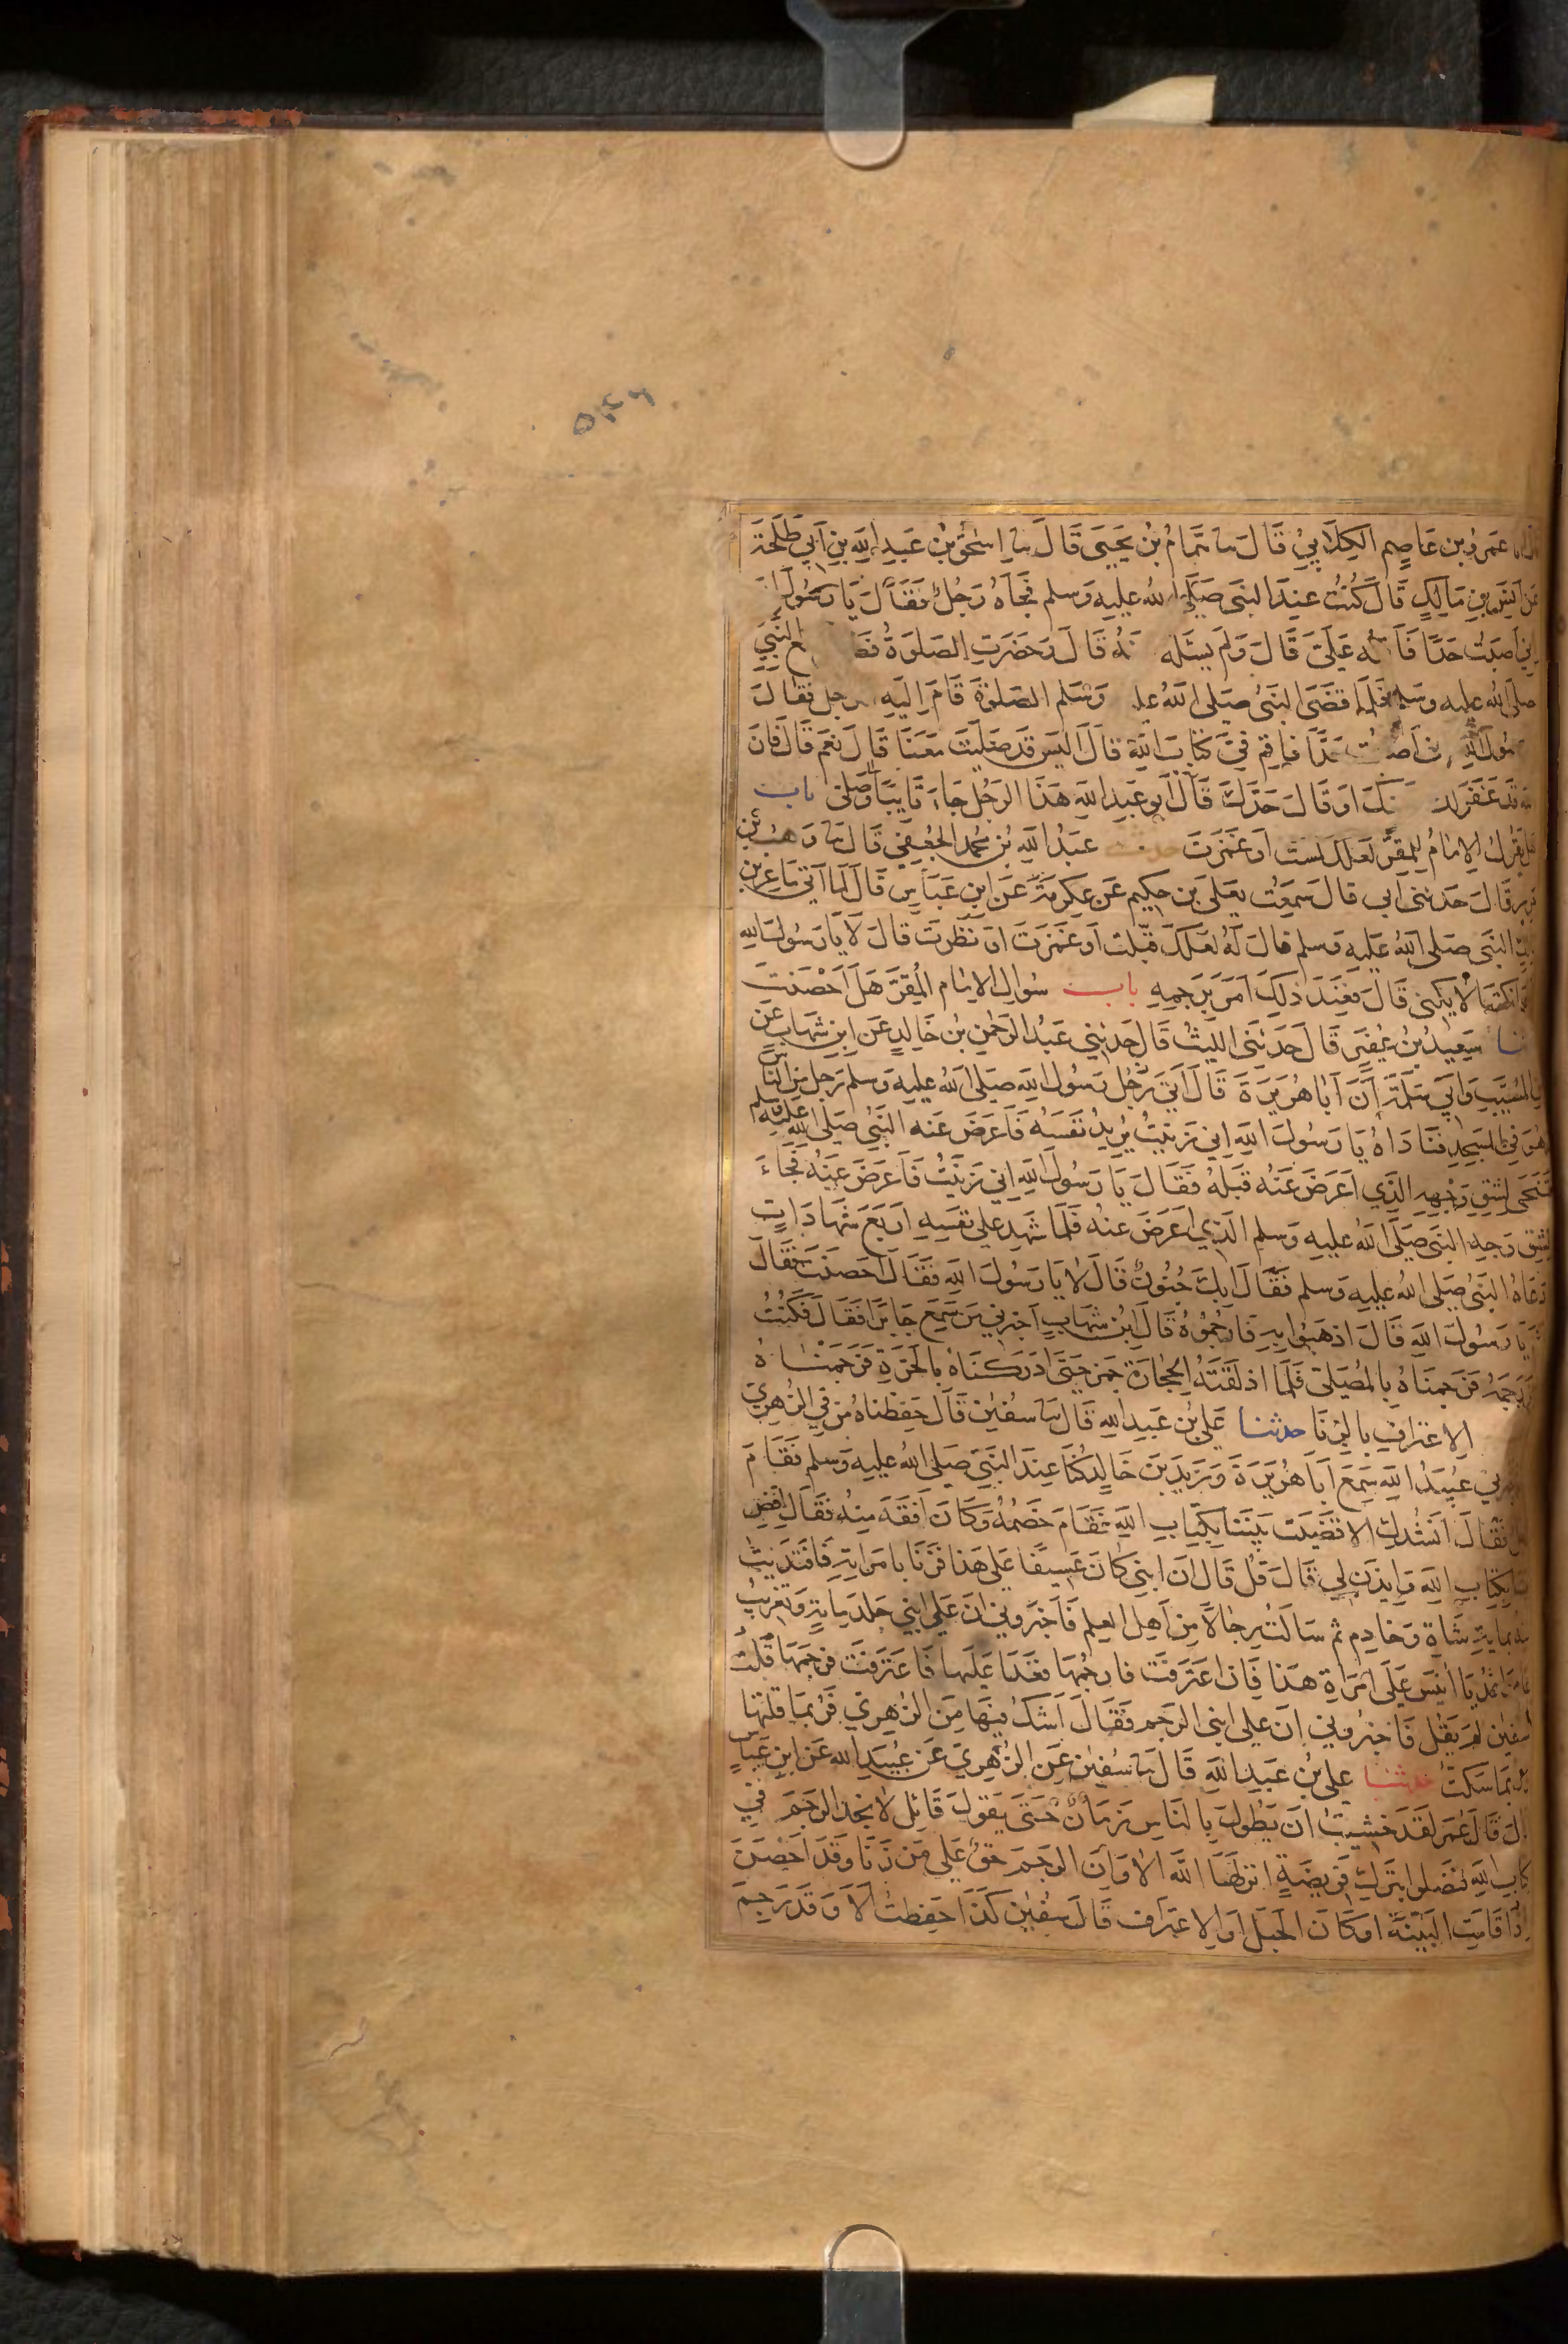 ٥٤٦
عمرو بن عاصم الكلابي قال سا همام بن يحيى قال سا اسحق بن عبد الله بن ابي طلحة
عن انس بن مالك قال كنت عند النبي صلى الله عليه وسلم فجاه رجل فقال يا رسول
اني اصبت حدا علي قال ولم يسئله قال وحضرت الصلوة النبي
صلى الله عليه وسلم فلما قضى النبي صلى الله وسلم الصلوة قام اليه رجل فقال
فاقم في كتاب الله قال اليس قد صليت معنا قال نعم قال فان
قد غفر لك او قال حدك قال ابو عبد الله هذا الرجل جاء تايبا وصلى باب
هل يقول الامام للمقر لعلك لمست او غمزت عبد الله بن محمد الجعفي قال سا وهب بن
قال حدثني ابي قال سمعت يعلى بن حكيم عن عكرمة عن ابن عباس قال لما اتي ماعز بن
النبي صلى الله عليه وسلم قال له لعلك قبلت او غمزت او نظرت قال لا يا رسول الله
لا يكني قال فعند ذلك امر برجمه باب سوال الامام المقر هل احصنت
سعيد بن عفير قال حدثني الليث قال حدثني عبد الرحمن بن خالد عن ابن شهاب عن
المسيب وابي سلمة ان ابا هريرة قال اتى رجل رسول الله صلى الله عليه وسلم رجل من الناس
وهو في المسجد فناداه يا رسول الله اني زنيت يريد نفسه فاعرض عنه النبي صلى الله عليه وسلم
فتنحى لشق وجهه الذي اعرض عنه قبله فقال يا رسول الله اني زنيت فاعرض عنه فجاء
لشق وجه النبي صلى الله عليه وسلم الذي اعرض عنه فلما شهد على نفسه اربع شهادات
دعاه النبي صلى الله عليه وسلم فقال ابك جنون قال لا يا رسول الله فقال احصنت فقال
يا رسول الله قال اذهبوا به فارجموه قال ابن شهاب اخبرني من سمع جابرا فقال فكنت
رجمه فرجمناه بالمصلى فلما اذلقته الحجارة جمز حتى ادركناه بالحرة فرجمناه
الاعتراف بالزنا حدثنا علي بن عبد الله قال سا سفين قال حفظناه من في الزهري
عبيد الله سمع ابا هريرة وزيد بن خالد كنا عند النبي صلى الله عليه وسلم فقام
فقال انشدك الا قضيت بيننا بكتاب الله فقام خصمه وكان افقه منه فقال اقض
بكتاب الله وايذن لي قال قل قال ان ابني كان عسيفا على هذا فزنا بامراته فافتديت
بماية شاة وخادم ثم سالت رجالا من اهل العلم فاخبروني ان على ابني جلد ماية وتغريب
يا انيس على امراة هذا فان اعترفت فارجمها فغدا عليها فاعترفت فرجمها قلت
لسفين لم يقل فاخبروني ان على ابني الرجم فقال اشك فيها من الزهري فربما قلتها
وربما سكت حدثنا علي بن عبد الله قال سا سفين عن الزهري عن عبيد الله عن ابن عباس
قال قال عمر لقد خشيت ان يطول بالناس زمان حتى يقول قائل لا نجد الرجم في
كتاب الله فيضلوا بترك فريضة انزلها الله الا وان الرجم حق على من زنا وقد احصن
اذا قامت البينة او كان الحبل او الاعتراف قال سفين كذا حفظت الا وقد رجم